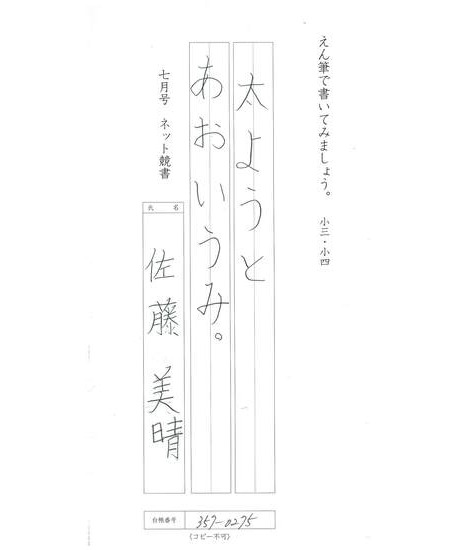 えん筆で書いてみましょう。 小三・小四
太ようと
あおいうみ。
七月号 ネット競書
氏名
佐藤 美晴
台帳番号 357-0275
(コピー不可)